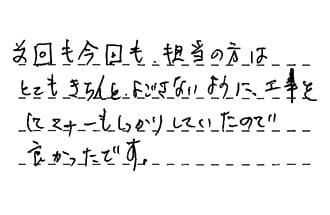 前回も今回も、担当の方は
とてもきちんと、よごさないように、工事を
してマナーもしっかりしていたので
良かったです。